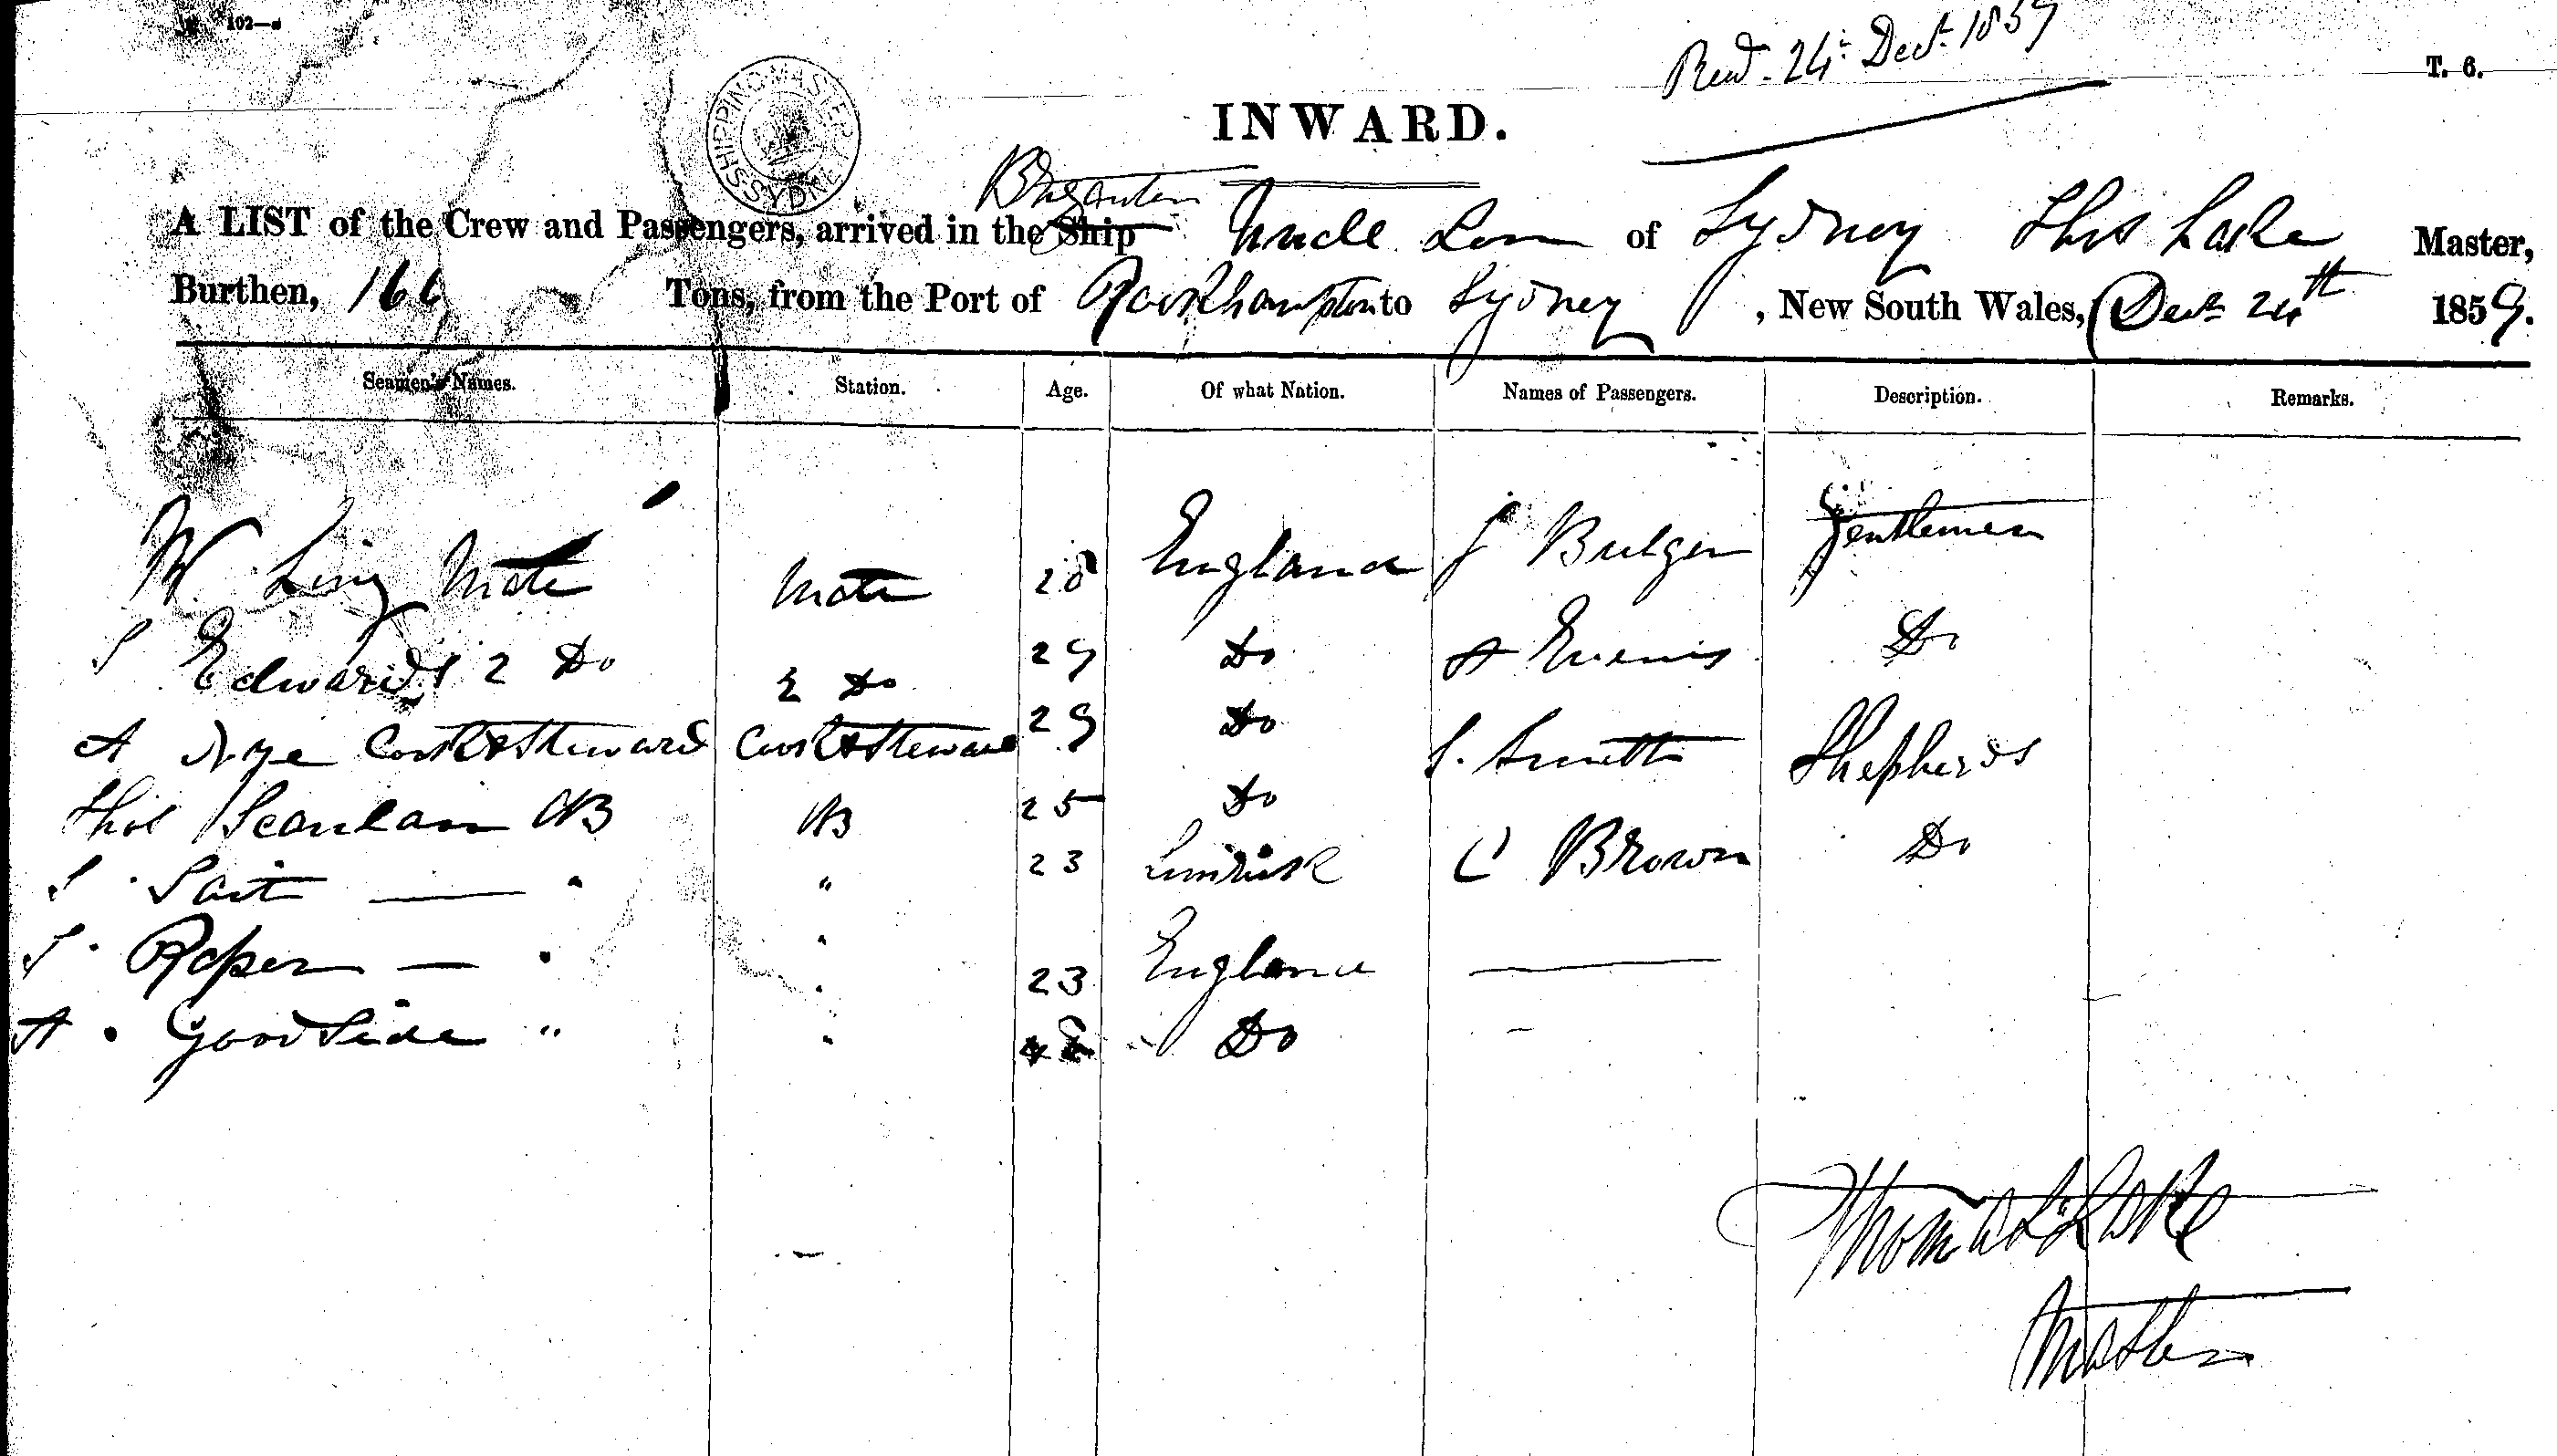 102—
Recd. 24th Decr. 1859
T. 6.
SHIPPING MASTER SYDNEY
INWARD.
Brigantine
A LIST of the Crew and Passengers, arrived in the Ship Uncle Tom of Sydney Thos Lake Master,
Burthen, 166 Tons, from the Port of Rockhampton to Sydney, New South Wales, Decr 24th 1859.
Seamen's Names. Station. Age. Of what Nation. Names of Passengers. Description. Remarks.
W Ling Mate Mate 28 England J Bulger Gentlemen
Edwards 2 Do 2 Do 29 Do A Do
A Nye Cook & Steward Cook & Steward 29 Do S. Smith Shepherds
Thos Scanlan AB AB 25 Do C Brown Do
23
Roper — " " 23 England —
A Goodside " " Do
Thomas Lake
Master